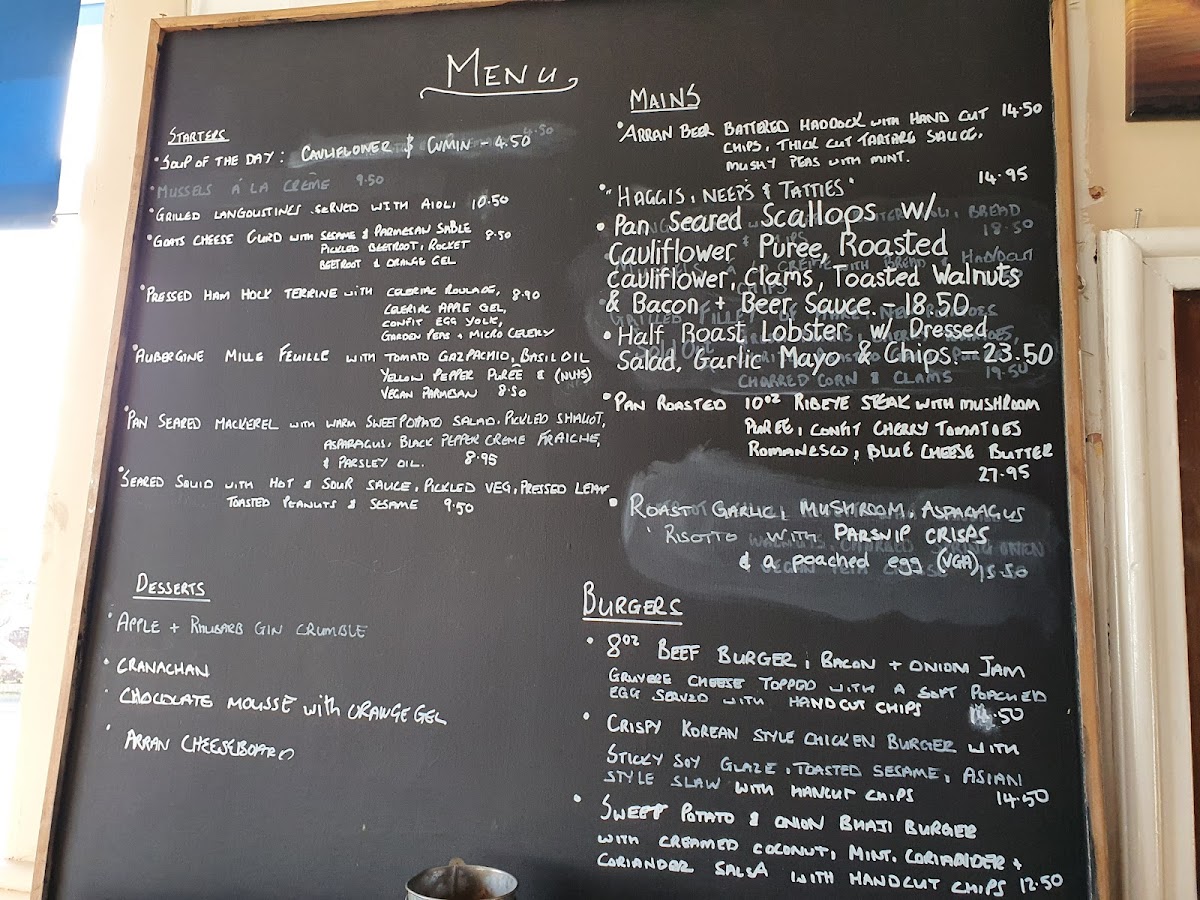 Menu
Starters
• Soup of the day: Cauliflower & Cumin - 4.50
• Mussels á la crème 9.50
• Grilled langoustines served with aioli 10.50
• Goats cheese curd with sesame & parmesan sable 8.50
Pickled beetroot, rocket
Beetroot & orange gel
• Pressed ham hock terrine with celeriac roulade, 8.90
Celeriac apple gel,
Confit egg yolk,
Garden peas + micro celery
• Aubergine mille feuille with tomato gazpachio, basil oil
Yellow pepper purée & (nuts)
Vegan parmesan 8.50
• Pan seared mackerel with warm sweet potato salad, pickled shallot,
asparagus, black pepper creme fraiche,
& parsley oil. 8.95
• Seared squid with hot & sour sauce, pickled veg, pressed leaf
toasted peanuts & sesame 9.50
Desserts
• Apple + rhubarb gin crumble
• Cranachan
• Chocolate mousse with orange gel
• Arran cheeseboard
Mains
• Arran beer battered haddock with hand cut 14.50
chips, thick cut tartare sauce,
mushy peas with mint.
• "Haggis, neeps & tatties" 14.95
• Pan Seared Scallops w/
Cauliflower Puree, Roasted
Cauliflower, Clams, Toasted Walnuts
& Bacon + Beer Sauce. - 18.50
• Half Roast Lobster w/ Dressed
Salad, Garlic Mayo & Chips. - 23.50
charred corn & clams 19.50
• Pan roasted 10oz ribeye steak with mushroom
puree, confit cherry tomatoes
romanesco, blue cheese butter
27.95
• Roast garlic, mushroom, asparagus
risotto with parsnip crisps
& a poached egg (VGA) 15.50
Burgers
• 8oz beef burger, bacon + onion jam
gruyere cheese topped with a soft poached
egg served with handcut chips 14.50
• Crispy Korean style chicken burger with
sticky soy glaze, toasted sesame, Asian
style slaw with hancut chips 14.50
• Sweet potato & onion bhaji burger
with creamed coconut, mint, coriander +
coriander salsa with handcut chips 12.50